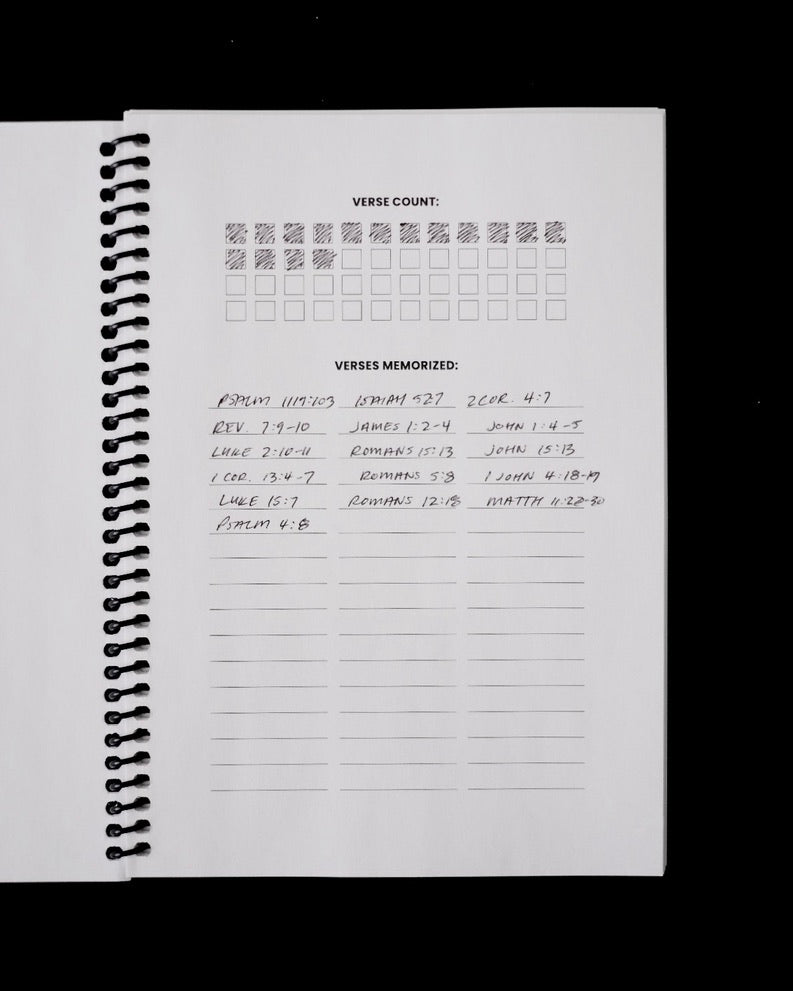 VERSE COUNT:
VERSES MEMORIZED:
PSALM 119:103 ISAIAH 52:7 2 COR. 4:7
REV. 7:9-10 JAMES 1:2-4 JOHN 1:4-5
LUKE 2:10-11 ROMANS 15:13 JOHN 15:13
1 COR. 13:4-7 ROMANS 5:8 1 JOHN 4:18-19
LUKE 15:7 ROMANS 12:18 MATTH 11:28-30
PSALM 4:8